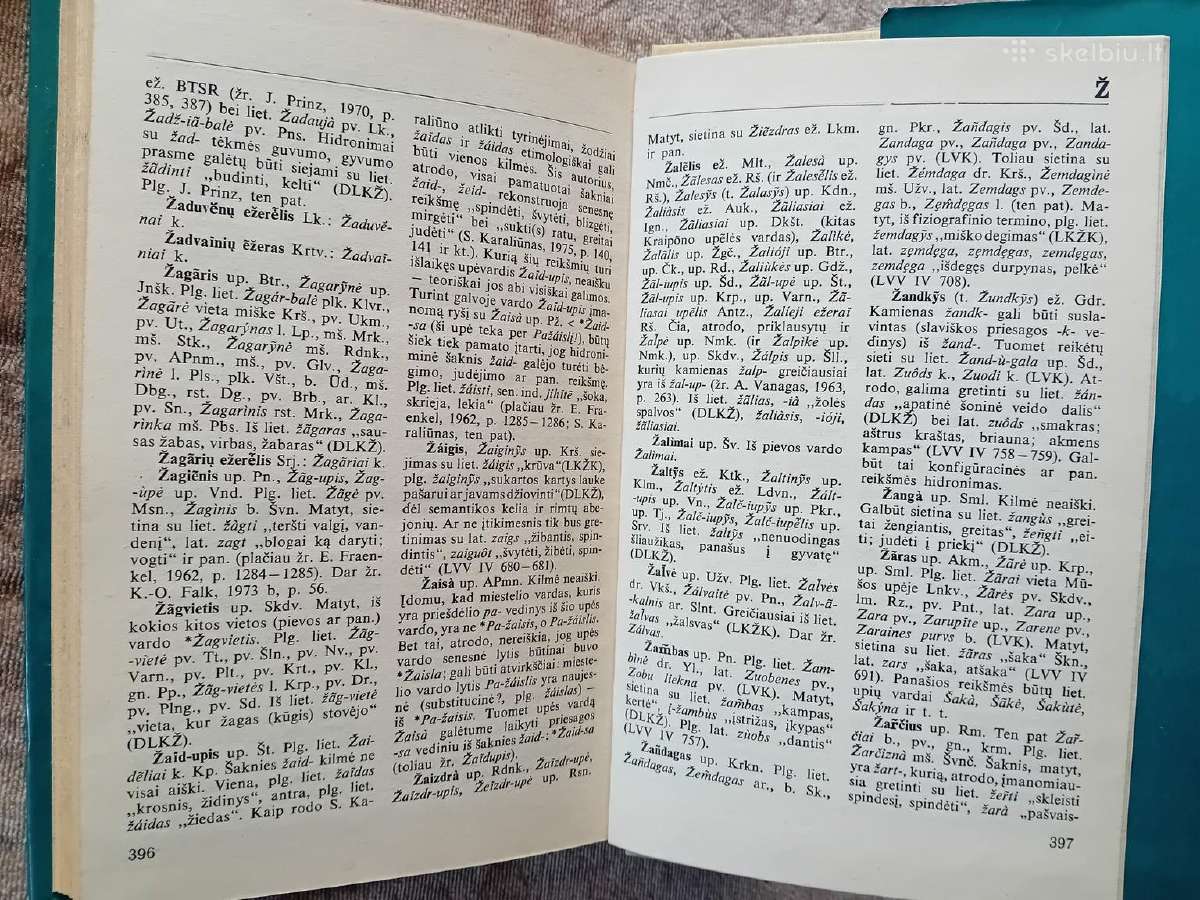 ež. BTSR (žr. J. Prinz, 1970, p.
385, 387) bei liet. Žadaujà pv. Lk.,
Žadž-iã-balė pv. Pns. Hidronimai
su žad- tėkmės guvumo, gyvumo
prasme galėtų būti siejami su liet.
žãdinti „budinti, kelti“ (DLKŽ).
Plg. J. Prinz, ten pat.
Žaduvė̃nų ežerė̃lis Lk.: Žaduvė̃-
nai k.
Žadvainių ẽžeras Krtv.: Žadvai-
niai k.
Žagãris up. Btr., Žagarỹnė up.
Jnšk. Plg. liet. Žagár-balė plk. Klvr.,
Žagãrė vieta miške Krš., pv. Ukm.,
pv. Ut., Žagarýnas l. Lp., mš. Mrk.,
mš. Stk., Žagarỹnė mš. Rdnk.,
pv. APnm., mš., pv. Glv., Žaga-
rìnė l. Pls., plk. Všt., b. Ūd., mš.
Dbg., rst. Dg., pv. Brb., ar. Kl.,
pv. Sn., Žagarìnis rst. Mrk., Žaga-
rinka mš. Pbs. Iš liet. žãgaras „sau-
sas žabas, virbas, žabaras“ (DLKŽ).
Žagãrių ežerė̃lis Srj.: Žagãriai k.
Žagiẽnis up. Pn., Žãg-upis, Žag-
-ùpė up. Vnd. Plg. liet. Žãgė pv.
Msn., Žaginis b. Švn. Matyt, sie-
tina su liet. žàgti „teršti valgį, van-
denį“, lat. zagt „blogai ką daryti;
vogti“ ir pan. (plačiau žr. E. Fraen-
kel, 1962, p. 1284—1285). Dar žr.
K.-O. Falk, 1973 b, p. 56.
Žãgvietis up. Skdv. Matyt, iš
kokios kitos vietos (pievos ar pan.)
vardo *Žagvietis. Plg. liet. Žãg-
-vietė pv. Tt., pv. Šln., pv. Nv., pv.
Varn., pv. Plt., pv. Krt., pv. Kl.,
gn. Pp., Žãg-vietės l. Krp., pv. Dr.,
pv. Plng., pv. Sd. Iš liet. žãg-vietė
„vieta, kur žagas (kūgis) stovėjo“
(DLKŽ).
Žaĩd-upis up. Št. Plg. liet. Žai-
dė̃liai k. Kp. Šaknies žaid- kilmė ne
visai aiški. Viena, plg. liet. žaĩdas
„krosnis, židinys“, antra, plg. liet.
žáidas „žiedas“. Kaip rodo S. Ka-
396
raliūno atlikti tyrinėjimai, žodžiai
žaĩdas ir žáidas etimologiškai gali
būti vienos kilmės. Šis autorius,
atrodo, visai pamatuotai šakniai
žaid-, žeid- rekonstruoja senesnę
reikšmę „spindėti, švytėti, blizgėti,
mirgėti“ bei „sukti(s) ratu, greitai
judėti“ (S. Karaliūnas, 1975, p. 140,
141 ir kt.). Kurią šių reikšmių turi
išlaikęs upėvardis Žaĩd-upis, neaišku
— teoriškai jos abi visiškai galimos.
Turint galvoje vardo Žaĩd-upis įma-
nomą ryšį su Žaisà up. Pž. < *Žaid-
-sa (ši upė teka per Pažáislį!), būtų
šiek tiek pamato įtarti, jog hidroni-
minė šaknis žaid- galėjo turėti bė-
gimo, judėjimo ar pan. reikšmę.
Plg. liet. žáisti, sen. ind. jíhītē „šoka,
skrieja, lekia“ (plačiau žr. E. Fra-
enkel, 1962, p. 1285—1286; S. Ka-
raliūnas, ten pat).
Žáigis, Žaiginỹs up. Krš. sie-
jimas su liet. žáigis „krūva“(LKŽK),
plg. žaiginỹs „sukartos kartys lauke
pašarui ar javams džiovinti“(DLKŽ),
dėl semantikos kelia ir rimtų abe-
jonių. Ar ne įtikimesnis tik bus gre-
tinimas su lat. zaigs „žibantis, spin-
dintis“, zaiguôt „švytėti, žibėti, spin-
dėti“ (LVV IV 680—681).
Žaisà up. APmn. Kilmė neaiški.
Įdomu, kad miestelio vardas, kuris
yra priešdėlio pa- vedinys iš šio upės
vardo, yra ne *Pa-žaisis, o Pa-žáislis.
Bet tai, atrodo, nereiškia, jog upės
vardo senesnė lytis būtinai buvo
*Žaisla; gali būti atvirkščiai: mieste-
lio vardo lytis Pa-žáislis yra naujes-
nė (substitucinė?, plg. žáislas) —
iš *Pa-žaisis. Tuomet upės vardą
Žaisà galėtume laikyti priesagos
-sa vediniu iš šaknies žaid-: *Žaid-sa
(toliau žr. Žaĩdupis).
Žaizdrà up. Rdnk., Žaizdr-upė,
Žaizdr-upis, Žeizdr-upė up. Rsn.
Ž
Matyt, sietina su Žiẽzdras ež. Lkm.
ir pan.
Žalė̃lis ež. Mlt., Žalesà up.
Nmč., Žãlesas ež. Rš. (ir Žalesė̃lis ež.
Rš.), Žalesỹs (t. Žalasỹs) up. Kdn.,
Žaliàsis ež. Auk., Žãliasiai ež.
Ign., Žãliasiai up. Dkšt. (kitas
Kraipõno upėlės vardas), Žalìkė,
Žalãlis up. Žgč., Žalióji up. Btr.,
up. Čk., up. Rd., Žaliùkės up. Gdž.,
Žãl-iupis up. Šd., Žãl-upė up. Št.,
Žãl-upis up. Krp., up. Varn., Žã-
liasai upėlis Antz., Žalíeji ežerai
Rš. Čia, atrodo, priklausytų ir
Žalpė̀ up. Nmk. (ir Žalpìkė up.
Nmk.), up. Skdv., Žálpis up. Šll.,
kurių kamienas žalp- greičiausiai
yra iš žal-up- (žr. A. Vanagas, 1963,
p. 263). Iš liet. žãlias, -ià „žolės
spalvos“ (DLKŽ), žaliàsis, -ióji,
žãliasiai.
Žalimai up. Šv. Iš pievos vardo
Žalimai.
Žaltỹs ež. Ktk., Žaltinỹs up.
Klm., Žaltýtis ež. Ldvn., Žált-
-upis up. Vn., Žalč-iupỹs up. Pkr.,
up. Tj., Žalč-iupỹs, Žalč-iupė̃lis up.
Srv. Iš liet. žaltỹs „nenuodingas
šliaužikas, panašus į gyvatę“
(DLKŽ).
Žalvė̀ up. Užv. Plg. liet. Žalvės
dr. Vkš., Žálvaitė pv. Pn., Žalv-ã-
-kalnis ar. Slnt. Greičiausiai iš liet.
žalvas „žalsvas“ (LKŽK). Dar žr.
Zálvas.
Žam̃bas up. Pn. Plg. liet. Žam-
bìnė dr. Yl., lat. Zuobenes pv.,
Zobu liekna pv. (LVK). Matyt,
sietina su liet. žam̃bas „kampas,
kertė“, į-žambùs „įstrižas, įkypas“
(DLKŽ). Plg. lat. zùobs „dantis“
(LVV IV 757).
Žañdagas up. Krkn. Plg. liet.
Žañdagas, Žem̃dagas ar., b. Sk.,
gn. Pkr., Žañdagis pv. Šd., lat.
Zandaga pv., Zañdaga pv., Zanda-
gys pv. (LVK). Toliau sietina su
Žémdaga dr. Krš., Žemdaginė
mš. Užv., lat. Zemdags pv., Zemde-
gas b., Zęm̃dęgas l. (ten pat). Ma-
tyt, iš fiziografinio termino, plg. liet.
žemdagỹs „miško degimas“ (LKŽK),
lat. zęmdęga, zęmdęgas, zemdęgas,
zemdęga „išdegęs durpynas, pelkė“
(LVV IV 708).
Žandkỹs (t. Žundkỹs) ež. Gdr.
Kamienas žandk- gali būti susla-
vintas (slaviškos priesagos -k- ve-
dinys) iš žand-. Tuomet reikėtų
sieti su liet. Žand-ù-gala up. Šd.,
lat. Zuôds k., Zuodi k. (LVK). At-
rodo, galima gretinti su liet. žán-
das „apatinė šoninė veido dalis“
(DLKŽ) bei lat. zuôds „smakras;
aštrus kraštas, briauna; akmens
kampas“ (LVV IV 758—759). Gal-
būt tai konfigūracinės ar pan.
reikšmės hidronimas.
Žangà up. Sml. Kilmė neaiški.
Galbūt sietina su liet. žangùs „grei-
tai žengiantis, greitas“, žeñgti „ei-
ti; judėti į priekį“ (DLKŽ).
Žãras up. Akm., Žãrė up. Krp.,
up. Sml. Plg. liet. Žãrai vieta Mū-
šos upėje Lnkv., Žãrės pv. Skdv.,
lm. Rz., pv. Pnt., lat. Zara up.,
Zara pv., Zarupīte up., Zarene pv.,
Zaraines purvs b. (LVK). Matyt,
sietina su liet. žãras „šaka“ Škn.,
lat. zars „šaka, atšaka“ (LVV IV
691). Panašios reikšmės būtų liet.
upių vardai Šakà, Šãkė, Šakùtė,
Šakýna ir t. t.
Žar̃čius up. Rm. Ten pat Žar̃-
čiai b., pv., gn., krm. Plg. liet.
Žarčiznà mš. Švnč. Šaknis, matyt,
yra žart-, kurią, atrodo, įmanomiau-
sia gretinti su liet. žer̃ti „skleisti
spindesį, spindėti“, žarà „pašvais-
397
skelbiu.lt